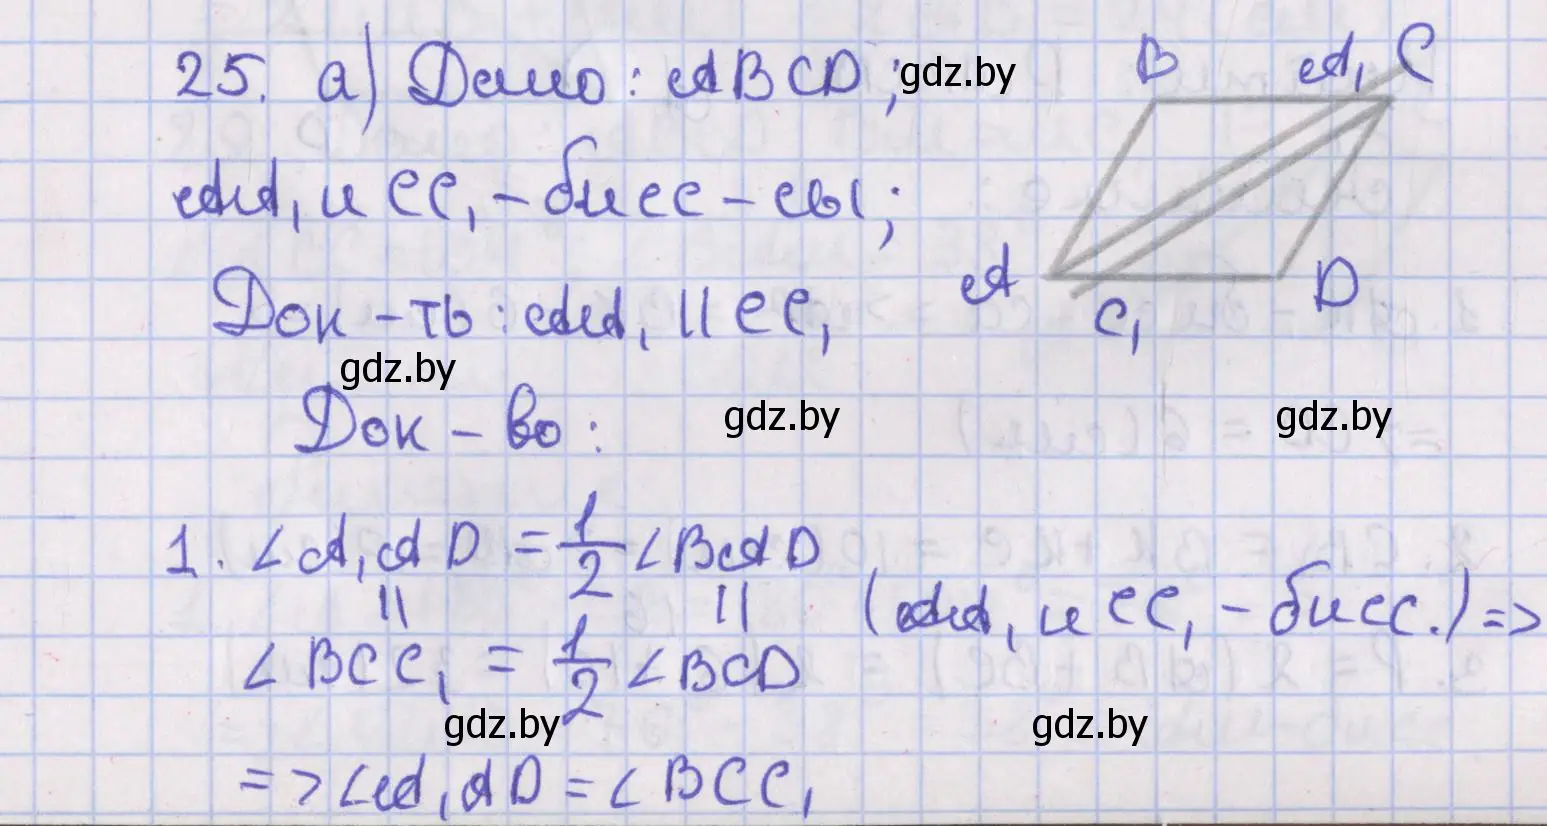 25. а) Дано: ABCD; gdz.by
B A₁ C
AA₁ и CC₁ – бисс-сы;
Док-ть: AA₁ || CC₁
A C₁ D
gdz.by
Док-во:
gdz.by gdz.by
1. ∠A₁AD = 1/2 ∠BAD
|| || (AA₁ и CC₁ – бисс.) =>
∠BCC₁ = 1/2 ∠BCD
gdz.by gdz.by
=> ∠A₁AD = ∠BCC₁